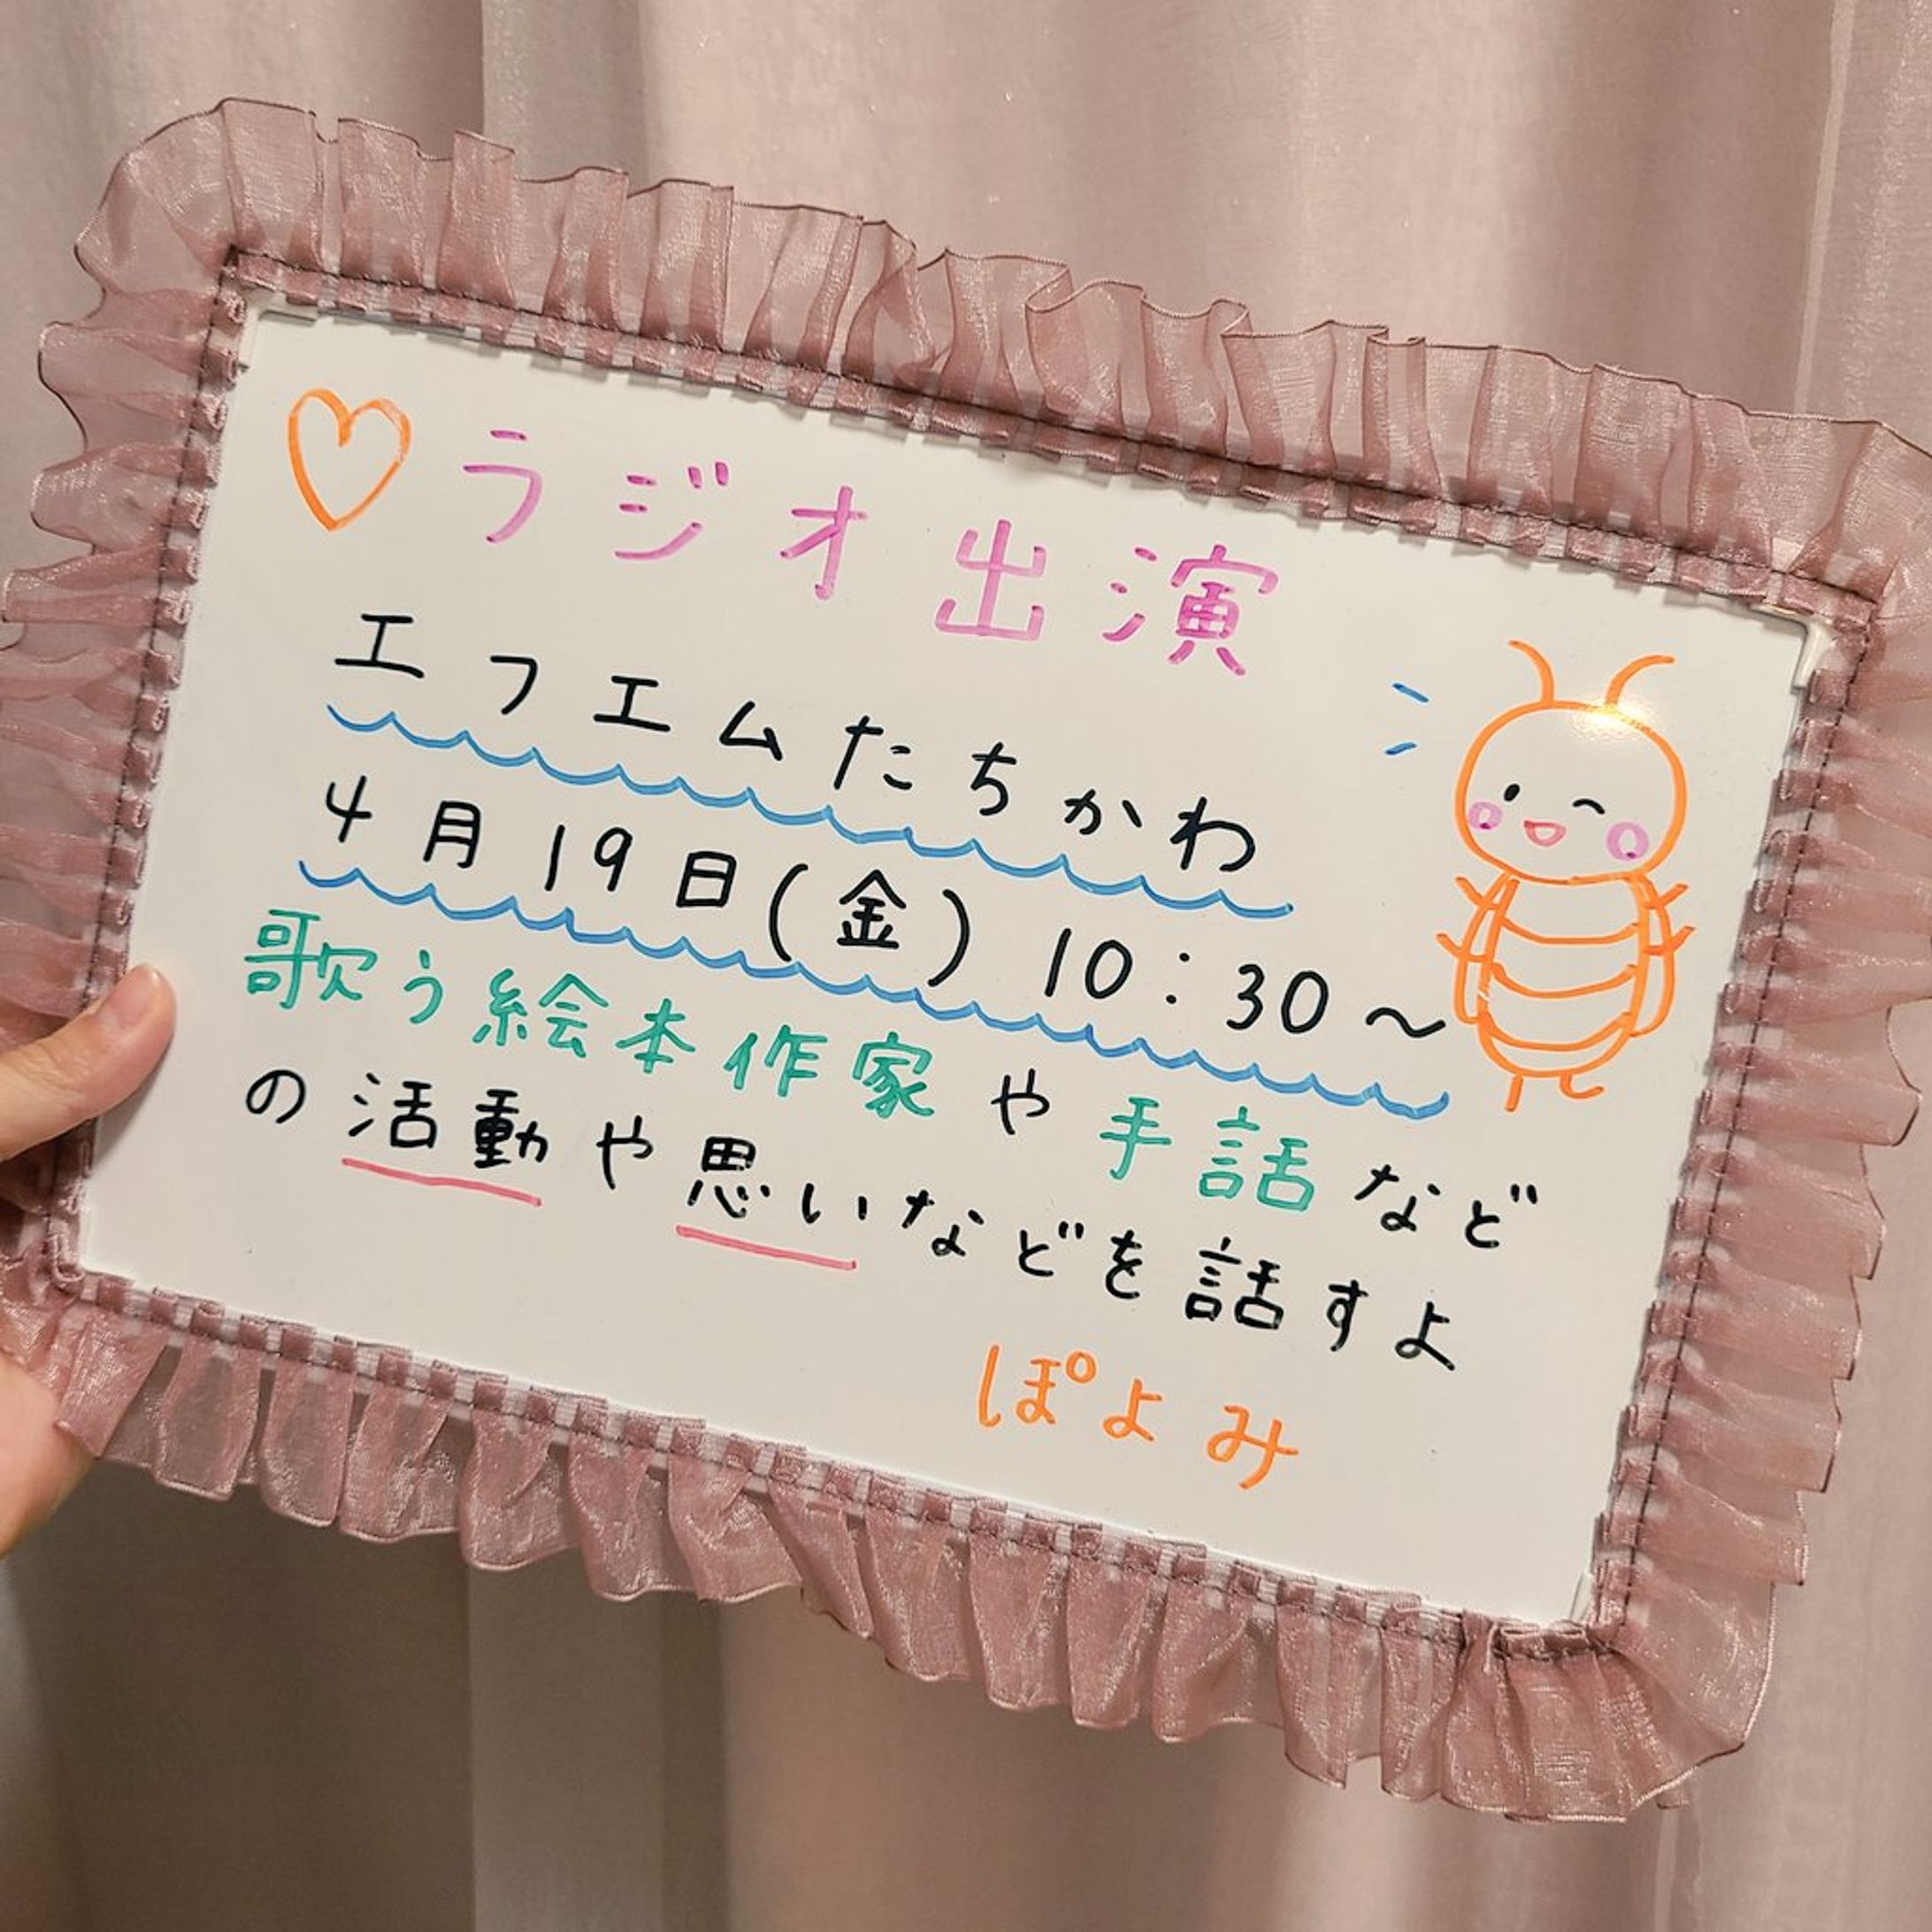 ♡ラジオ出演
エフエムたちかわ
4月19日(金) 10:30~
歌う絵本作家や手話など
の活動や思いなどを話すよ
ぽよみ